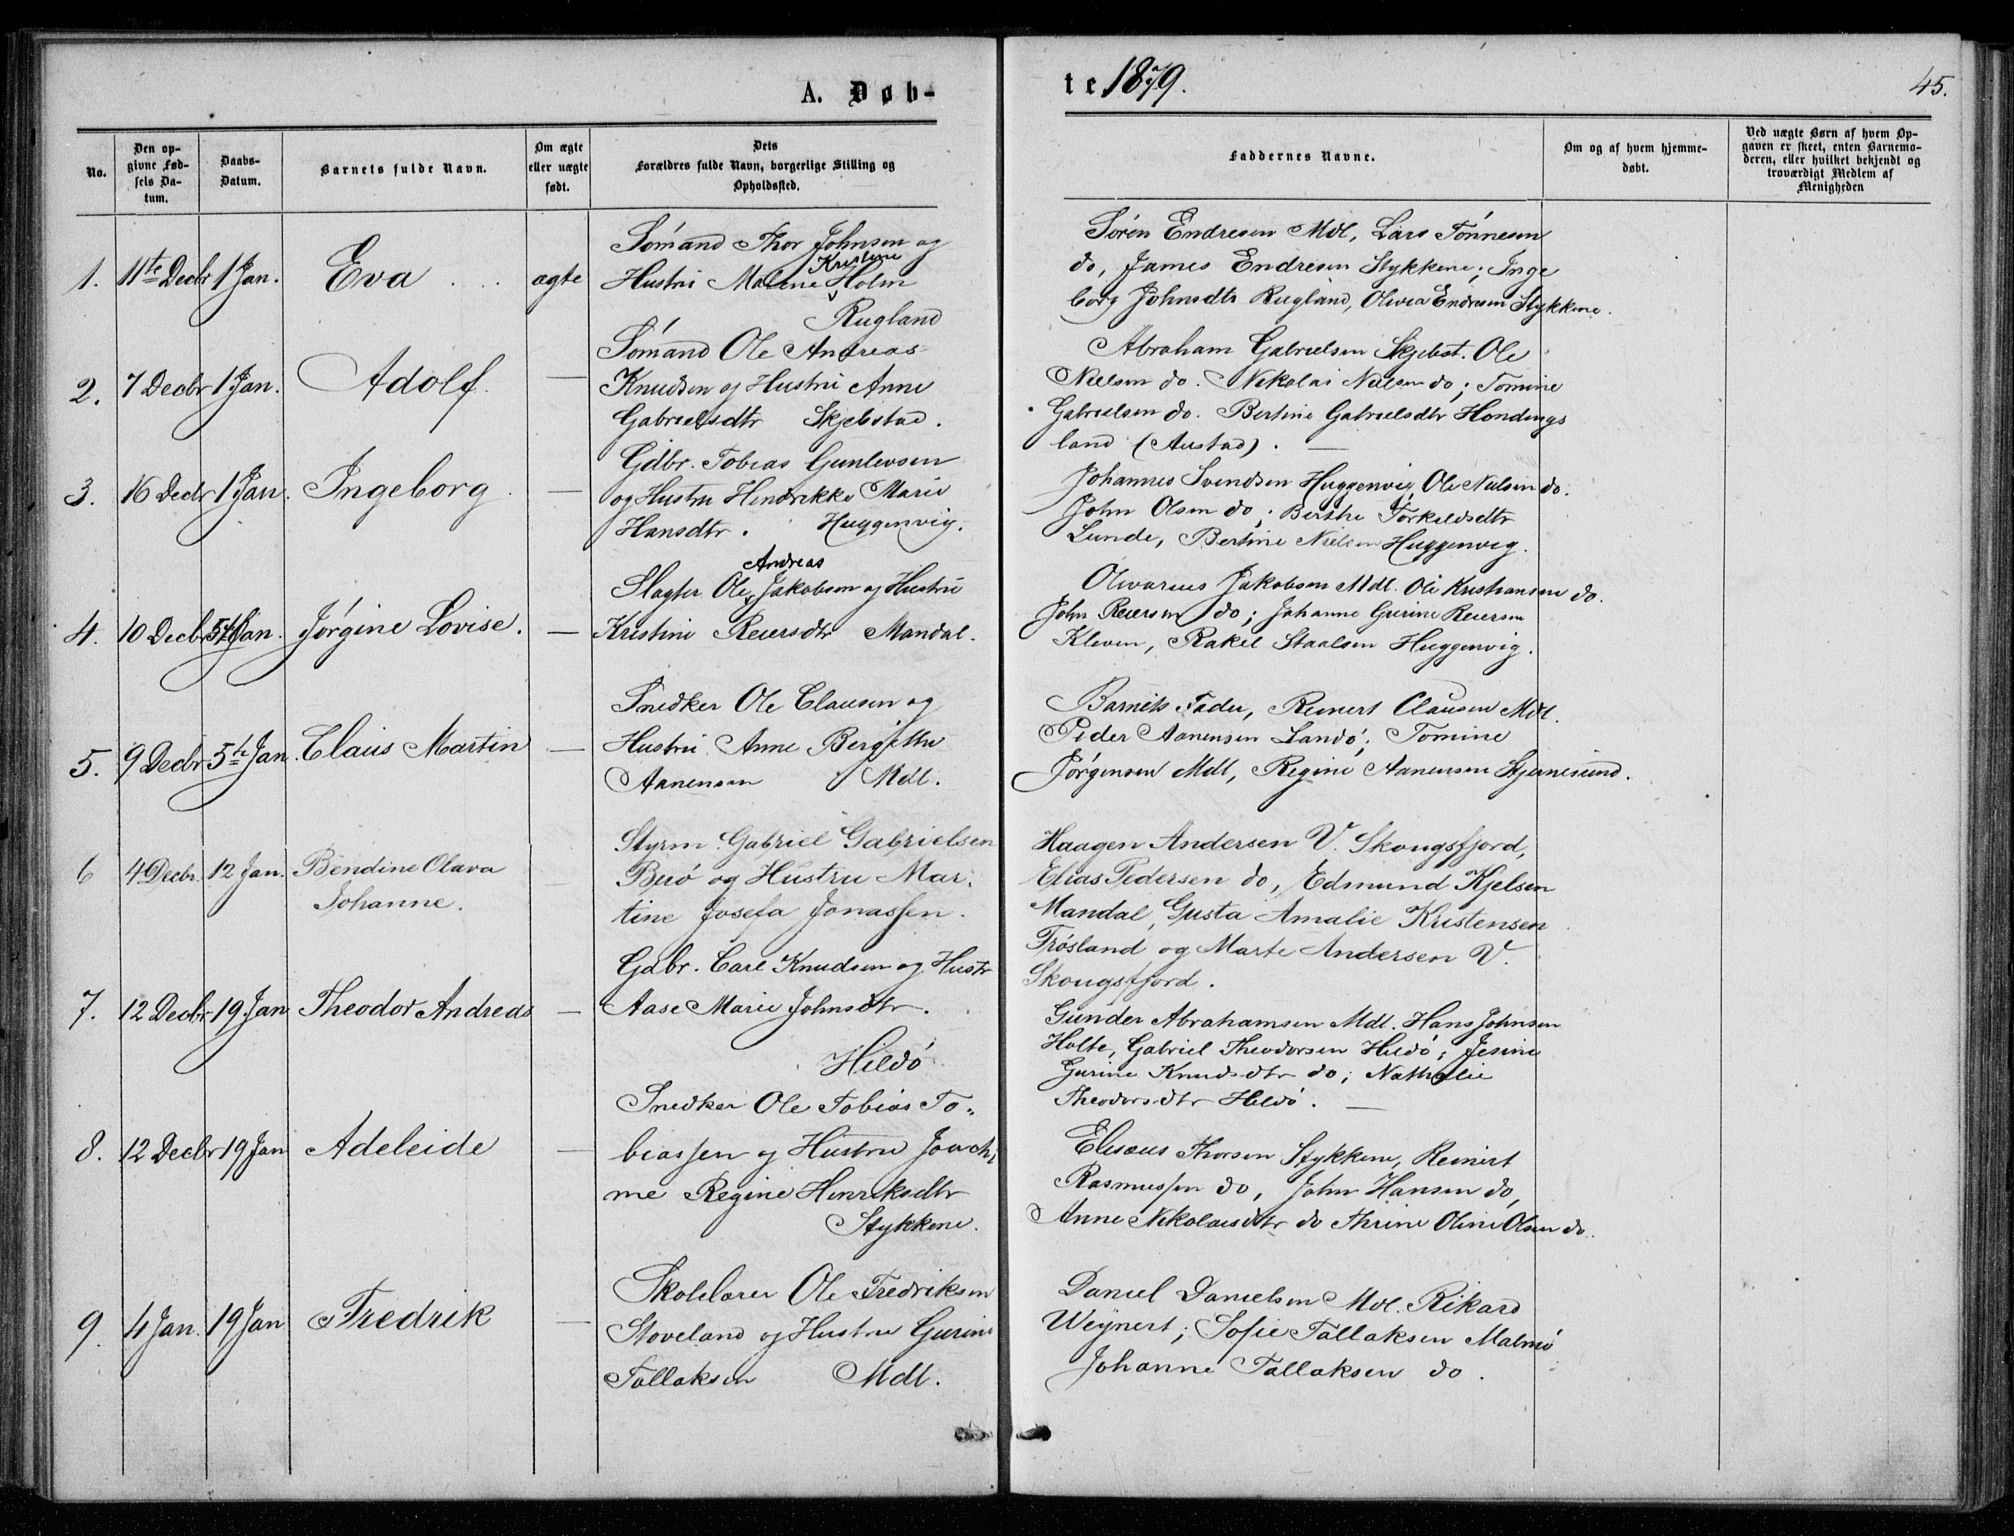 A. Døb-
te 1879.
45.
No.
Den opgivne Fødsels Datum.
Daabs-Datum.
Barnets fulde Navn.
Om ægte eller uægte født.
Dets Forældres fulde Navn, borgerlige Stilling og Opholdssted.
Faddernes Navne.
Om og af hvem hjemmedøbt.
Ved uægte Børn af hvem Opgaven er skeet, enten Barnemoderen, eller hvilket bekjendt og troværdigt Medlem af Menigheden
1. 11te Decbr 1 Jan. Eva ægte
Sømand Thor Johnsen og
Hustru Malene Kristine Holm
Rugland
Søren Endresen Mdl, Lars Tønnesen
do, James Endresen Stykkene; Inge
borg Johnsdtr Rugland, Olivia Endresen Stykkene.
2. 7 Decbr 1 Jan. Adolf. —
Sømand Ole Andreas
Knudsen og Hustru Anne
Gabrielsdtr Skjebstad.
Abraham Gabrielsen Skjebst. Ole
Nielsen do. Nikolai Nielsen do; Tomine
Gabrielsen do. Bertine Gabrielsdtr Hondings
land (Austad). —
3. 16 Decbr 1 Jan. Ingeborg. —
Gdbr. Tobias Gunlevsen
og Hustru Hendrikke Marie
Hansdtr. Huggenvig.
Johannes Svendsen Huggenvig, Ole Nielsen do.
John Olsen do; Berthe Torkeldsdtr
Lunde, Bertine Nielsen Huggenvig.
4. 10 Decbr 5te Jan. Jørgine Lovise. —
Slagter Ole Andreas Jakobsen og Hustru
Kristine Reiersdtr Mandal.
Olivarius Jakobsen Mdl. Ole Kristiansen do.
John Reiersen do; Johanne Gurine Reiersen
Kleven, Rakel Staalsen Huggenvig.
5. 9 Decbr 5te Jan. Claus Martin —
Snedker Ole Clausen og
Hustru Anne Bergitte
Aanensen Mdl.
Barnets Fader, Reinert Clausen Mdl.
Peder Aanensen Landø; Tomine
Jørgensen Mdl, Regine Aanensen Skjernesund.
6 4 Decbr. 12 Jan. Bendine Olava
Johanne.
Styrm. Gabriel Gabrielsen
Buø og Hustru Mar-
tine Josefa Jonassen.
Haagen Andersen V. Skougsfjord,
Elias Pedersen do, Edmund Kjelsen
Mandal, Gusta Amalie Kristensen
Frøsland og Marte Andersen V.
Skougsfjord.
7. 12 Decbr 19 Jan Theodor Andreas —
Gdbr. Carl Knudsen og Hustr
Aase Marie Johnsdtr.
Hildø
Gunder Abrahamsen Mdl. Hans Johnsen
Holte, Gabriel Theodorsen Hildø; Jesine
Gurine Knudsdtr do; Nathalie
Theodorsdtr Hildø. —
8. 12 Decbr 19 Jan Adeleide —
Snedker Ole Tobias To-
biassen og Hustru Joachi
me Regine Henriksdtr
Stykkene.
Elisæus Thorsen Stykkene, Reinert
Rasmussen do, John Hansen do,
Anne Nikolaisdtr do Thrine Oline Olsen do.
9. 4 Jan. 19 Jan Fredrik —
Skolelærer Ole Fredriksen
Stoveland og Hustru Gurine
Tallaksen Mdl.
Daniel Danielsen Mdl. Rikard
Weynert; Sofie Tallaksen Malmø
Johanne Tallaksen do.